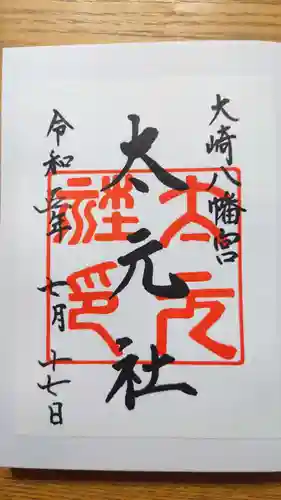 大崎八幡宮
太元社
太元社印
令和五年
七月十七日